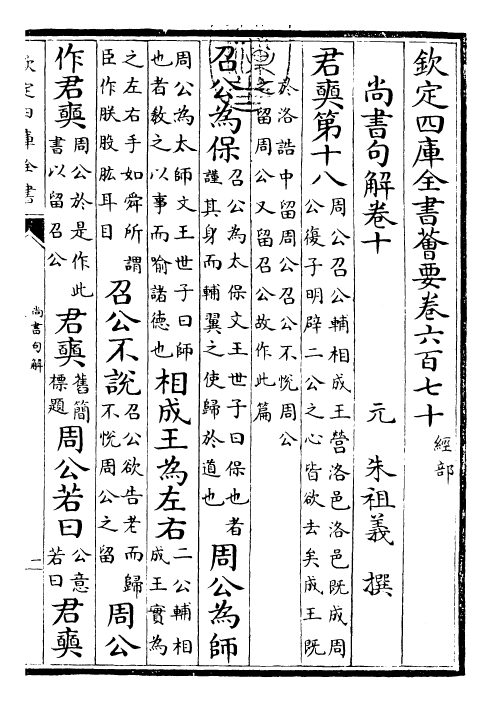 欽定四庫全書薈要卷六百七十 經部
尚書句解卷十
元 朱祖義 撰
君奭第十八 周公召公輔相成王營洛邑洛邑既成周
公復子明辟二公之心皆欲去矣成王既
於洛誥中留周公召公不恱周公
留周公又留召公故作此篇
召公為保 召公為太保文王世子曰保也者
謹其身而輔翼之使歸於道也 周公為師
周公為太師文王世子曰師
也者教之以事而喻諸德也 相成王為左右 二公輔相
成王實為
之左右手如舜所謂
臣作朕股肱耳目 召公不說 召公欲告老而歸
不恱周公之留 周公
作君奭 周公於是作此
書以留召公 君奭 舊簡
標題 周公若曰 公意
若曰 君奭
欽定四庫全書
尚書句解
一